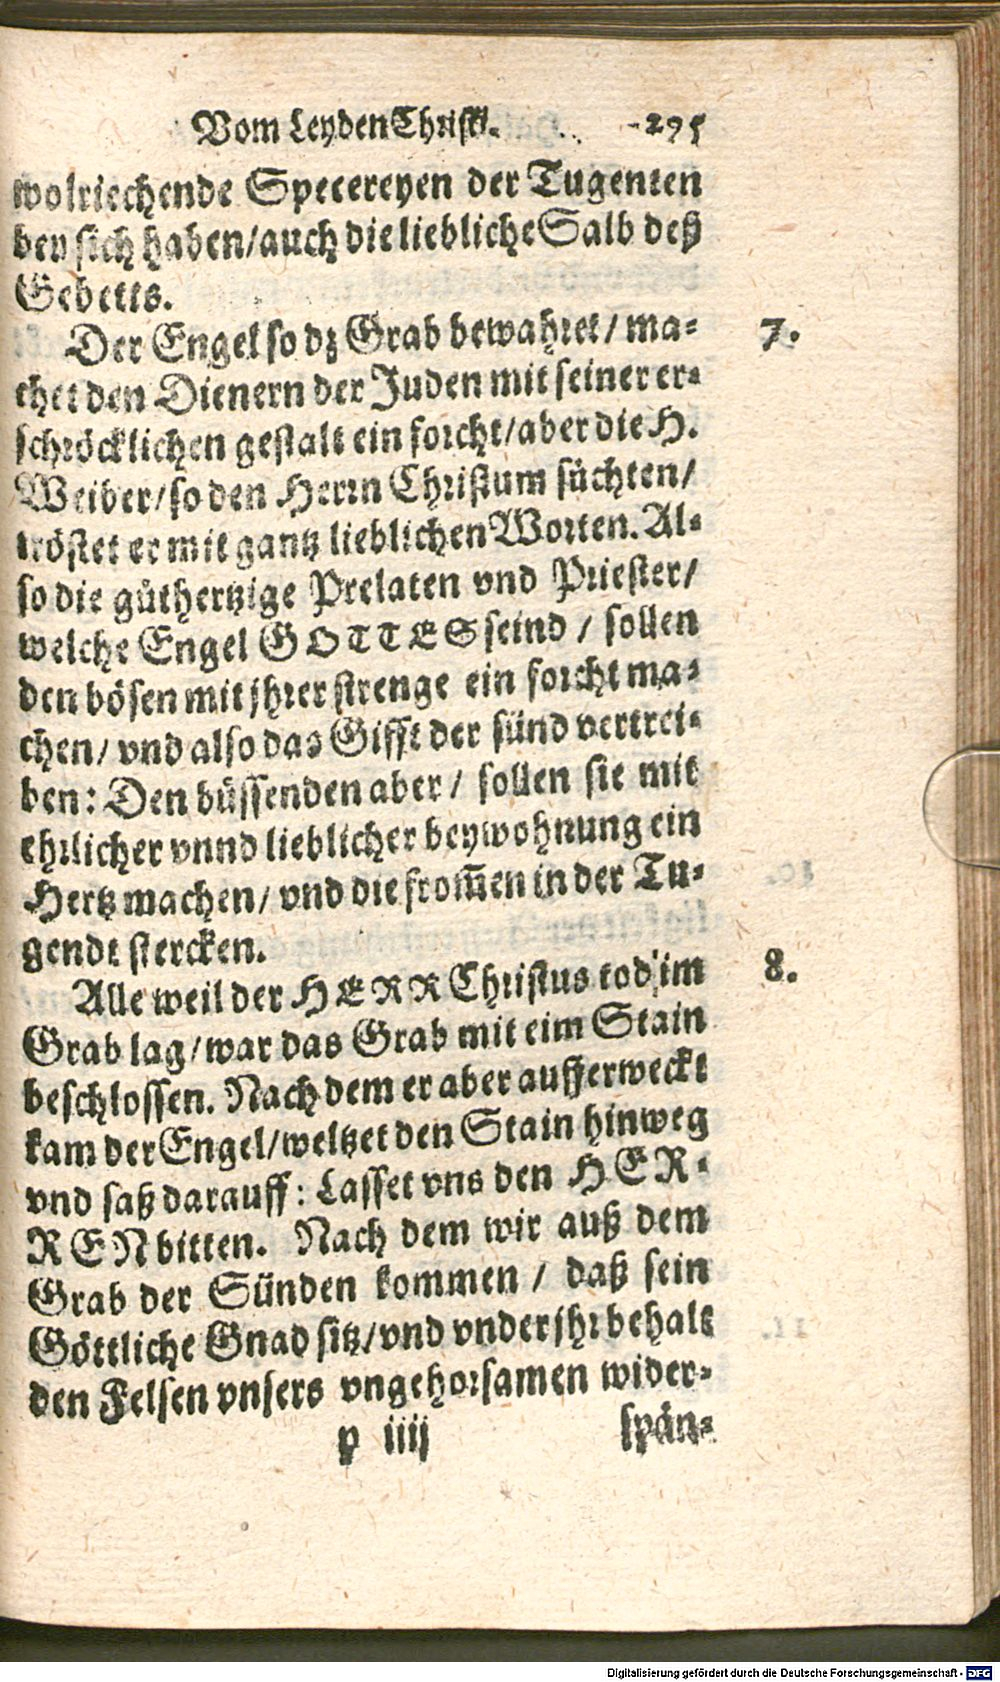 Vom Leyden Christi. 295
wolriechende Specereyen der Tugenten
bey sich haben/auch die liebliche Salb deß
Gebetts.
Der Engel so dz Grab bewahret/ ma- 7.
chet den Dienern der Juden mit seiner er-
schröcklichen gestalt ein forcht/aber die H.
Weiber/so den Herrn Christum süchten/
tröstet er mit gantz lieblichen Worten. Al-
so die güthertzige Prelaten vnd Priester/
welche Engel GOTTES seind / sollen
den bösen mit jhrer strenge ein forcht ma-
chen/ vnd also das Gifft der sünd vertrei-
ben: Den büssenden aber/ sollen sie mit
ehrlicher vnnd lieblicher beywohnung ein
Hertz machen/ vnd die from̃en in der Tu-
gendt stercken.
Alle weil der HERR Christus tod im 8.
Grab lag/war das Grab mit eim Stain
beschlossen. Nach dem er aber aufferweckt
kam der Engel/weltzet den Stain hinweg
vnd saß darauff: Lasset vns den HER-
REN bitten. Nach dem wir auß dem
Grab der Sünden kommen / daß sein
Göttliche Gnad sitz/vnd vnder jhr behalt
den Felsen vnsers vngehorsamen wider-
p iiij spän-
Digitalisierung gefördert durch die Deutsche Forschungsgemeinschaft - DFG